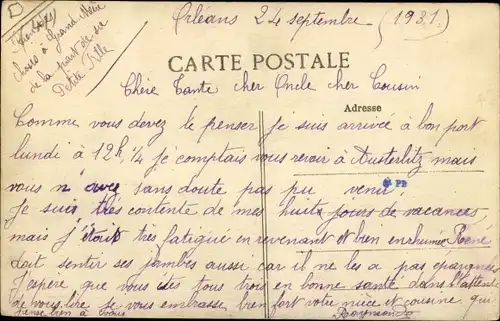 Orléans 24 septembre (1931)
choses à Grand Mère
de la part de sa
Petite Fille
CARTE POSTALE
Chère Tante cher Oncle cher Cousin
Adresse
Comme vous devez le penser je suis arrivée à bon port
lundi à 12h 1/4 je comptais vous revoir à Austerlitz mais
vous n'avez sans doute pas pu venir.
je suis très contente de mes huit jours de vacances,
mais j'étais très fatigué en revenant et bien enrhumée René
doit sentir ses jambes aussi car il ne les a pas épargnées
J'espère que vous êtes tous trois en bonne santé dans l'attente
de vous lire je vous embrasse bien fort votre nièce et cousine qui
pense bien à vous Raymonde